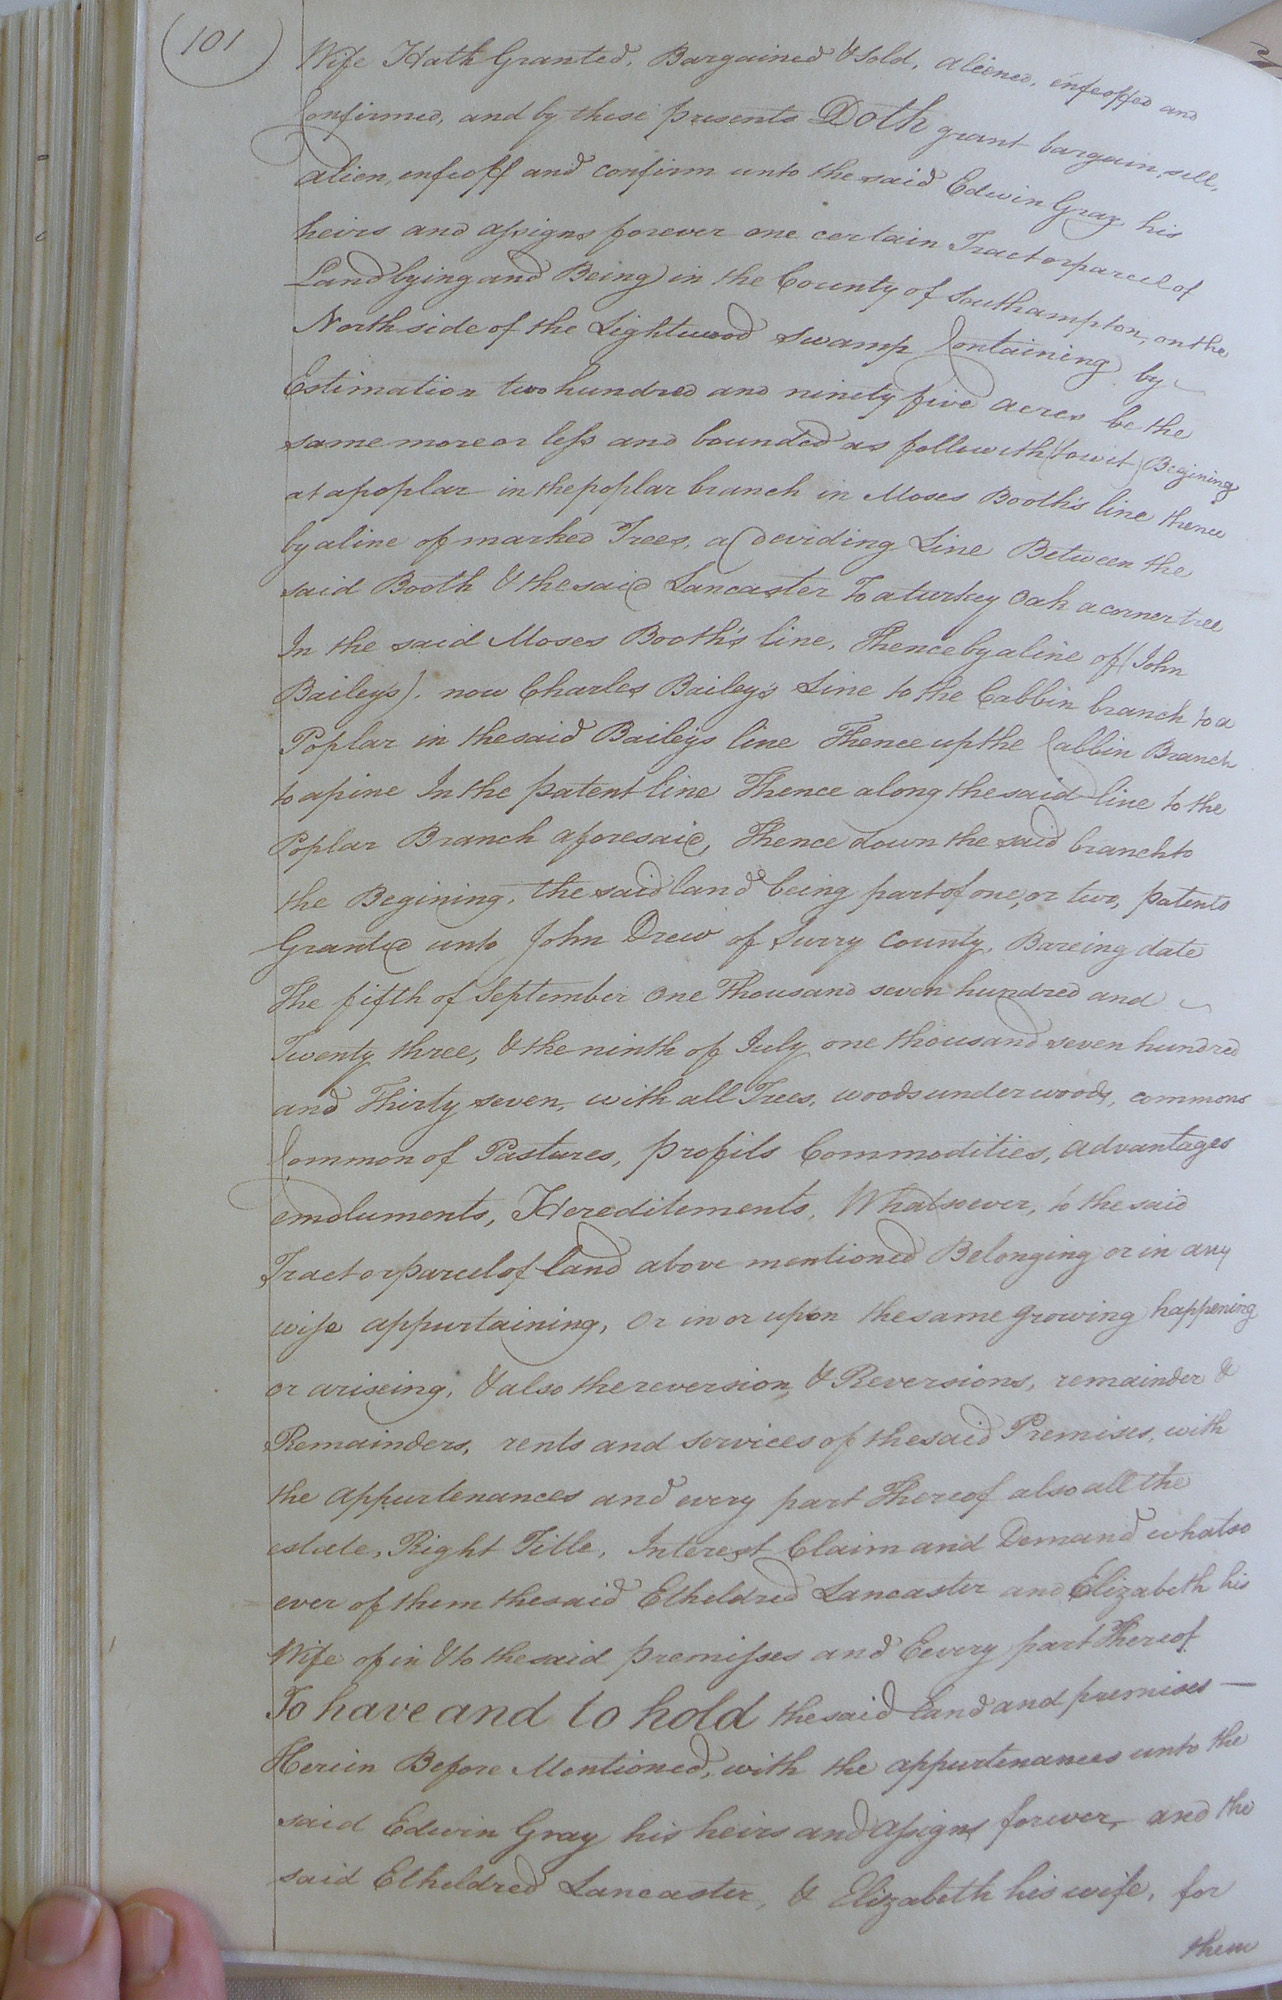 101
Wife Hath Granted, Bargained & Sold, aliened, enfeoffed and
Confirmed, and by these presents Doth grant bargain, sell,
alien, enfeoff and confirm unto the said Edwin Gray his
heirs and assigns forever one certain Tract or parcel of
Land lying and Being in the County of Southampton, on the
North side of the Lightwood Swamp Containing by
Estimation two hundred and ninety five acres be the
same more or less and bounded as followith (towit) Begining
at a poplar in the poplar branch in Moses Booth's line thence
by a line of marked Trees, a Deviding Line Between the
said Booth & the said Lancaster To a turkey Oak a corner tree
In the said Moses Booth's line, Thence by a line of (John
Bailey's). now Charles Bailey's Line to the Cabbin branch to a
Poplar in the said Bailey's line Thence up the Cabbin Branch
to a pine In the patent line Thence along the said line to the
Poplar Branch aforesaid, Thence down the said branch to
the Begining, the said land being part of one, or two, patents
Granted unto John Drew of Surry County, Bareing date
The fifth of September One Thousand seven hundred and
Twenty three, & the ninth of July one thousand seven hundred
and Thirty seven, with all Trees, woods underwoods, commons
Common of Pastures, profits Commodities, advantages
emoluments, Hereditements, Whatsoever, to the said
Tract or parcel of land above mentioned Belonging or in any
wise appurtaining, Or in or upon the same growing happening
or ariseing, & also the reversion & Reversions, remainder &
Remainders, rents and services of the said Premises, with
the appurtenances and every part Thereof also all the
estate, Right Title, Interest Claim and Demand whatso
ever of them the said Etheldred Lancaster and Elizabeth his
Wife of in & to the said premisses and Eevery part Thereof
To have and to hold the said Land and premises —
Herein Before Mentioned, with the appurtenances unto the
said Edwin Gray his heirs and assigns forever, and the
said Etheldred Lancaster, & Elizabeth his wife, for
them